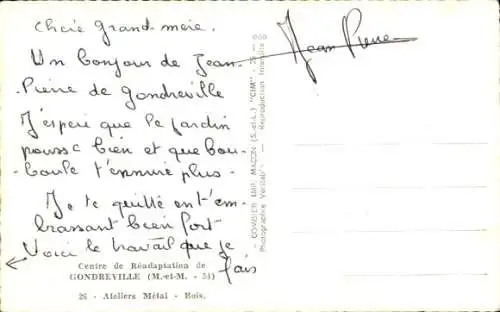 Chère Grand-mère.
Un bonjour de Jean-
Pierre de Gondreville
J'espère que le jardin
pousse bien et que bou-
-boule t'ennuie plus-
Je te quitte en t'em-
brassant bien fort
Voici le travail que je
fais
Jean Pierre
Centre de Réadaptation de
GONDREVILLE (M.-et-M. - 54)
26 - Ateliers Métal - Bois.
COMBIER IMP. MACON (S.-et-L.) "CIM"
Photographie Véritable - Reproduction Interdite